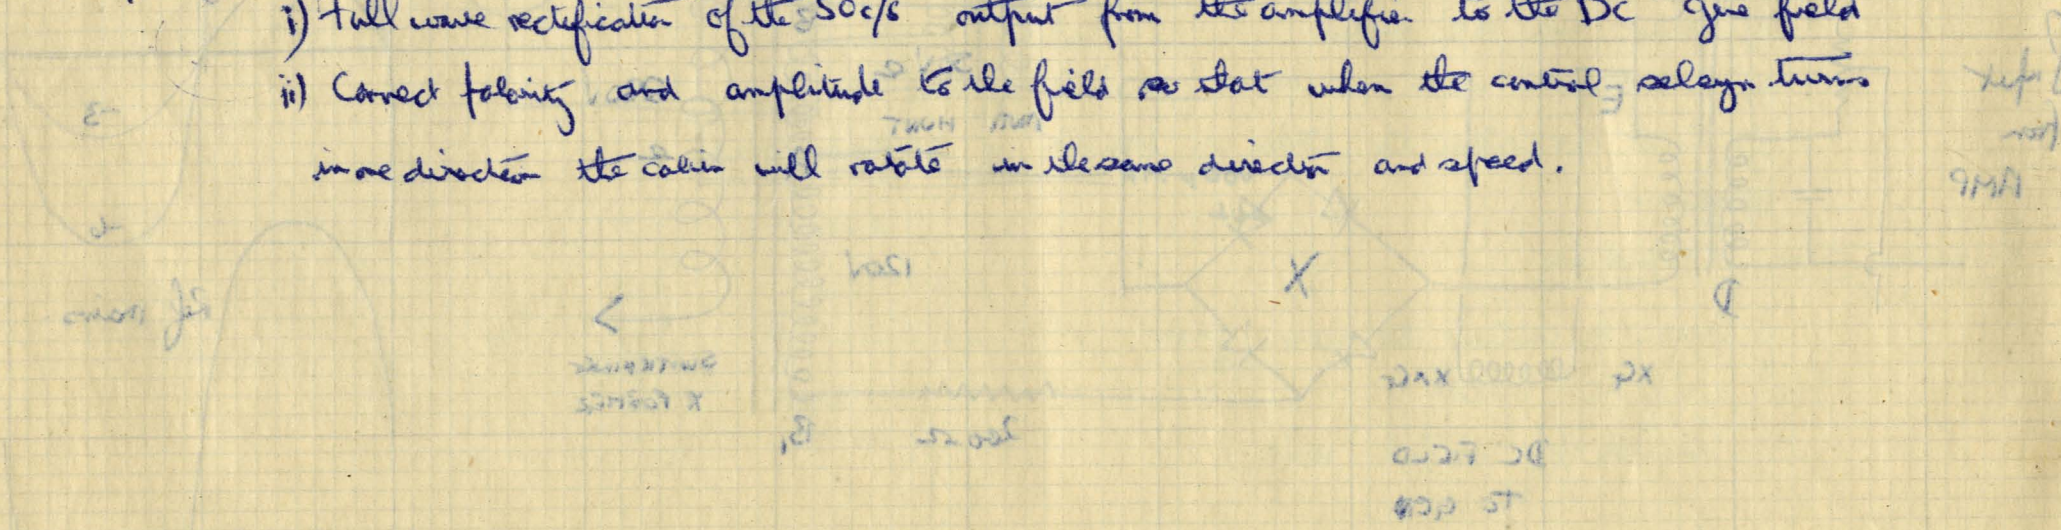 i) Full wave rectification of the 50 c/s output from the amplifier to the DC gene field
ii) Correct polarity and amplitude to the field so that when the control selsyn turns
in one direction the cabin will rotate in the same direction and speed.
-3
-6
ref mains
120V
X
D
AMP
X FORMER
B,
200 Ω
DC FIELD
TO GEN